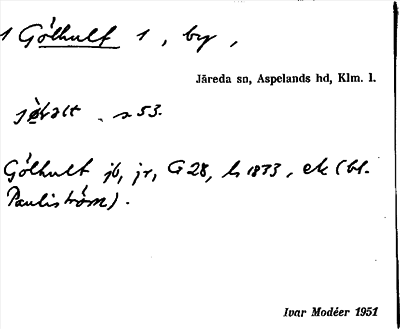 1 Gölhult 1, by,
Järeda sn, Aspelands hd, Klm. l.
s 53.
Gölhult jb, jr, G 28, h 1873, ek (bl.
Pauliström).
Ivar Modéer 1951